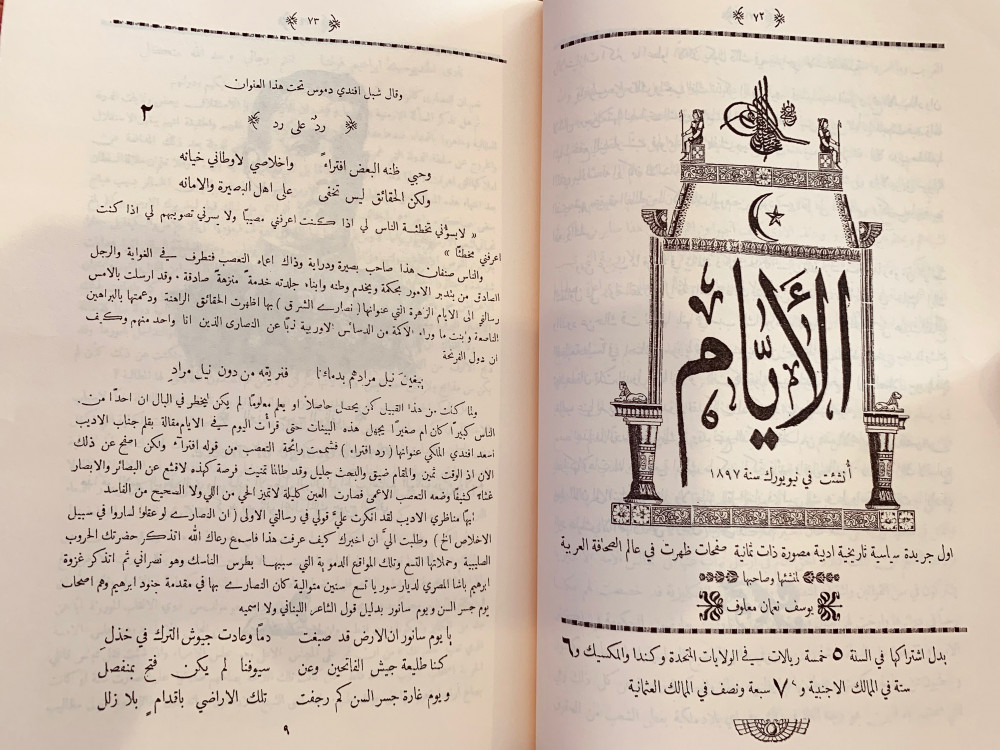 ٧٢
الأيام
أُنشئت في نيويورك سنة ١٨٩٧
اول جريدة سياسية تاريخية ادبية مصورة ذات ثمانية صفحات ظهرت في عالم الصحافة العربية
لمنشئها وصاحبها
يوسف نعمان معلوف
بدل اشتراكها في السنة ٥ خمسة ريالات في الولايات المتحدة وكندا والمكسيك و٦
ستة في الممالك الاجنبية و ٧ سبعة ونصف في الممالك العثمانية
٧٣
وقال شبل افندي دموس تحت هذا العنوان
٢
ردٌ على رد
وحبي ظنه البعض افتراءً واخلاصي لاوطاني خيانه
ولكن الحقائق ليس تخفى على اهل البصيرة والامانه
« لايسؤني تخطئة الناس لي اذا كنت اعرفني مصيباً ولا يسرني تصويبهم لي اذا كنت
اعرفني مخطئاً »
والناس صنفان هذا صاحب بصيرة ودراية وذاك اعماه التعصب فتطرف في الغواية والرجل
الصادق من يتدبر الامور بحكمة ويخدم وطنه وابناء جلدته خدمةً منزهةً صادقة ٠ وقد ارسلت بالامس
رسالتي الى الايام الزهرة التي عنوانها ( نصارى الشرق ) بها اظهرت الحقائق الراهنة ودعمتها بالبراهين
الناصعة وابنت ما وراء الاكمة من الدسائس الاوربية ذبًّا عن النصارى الذين انا واحد منهم وكيف
ان دول الفرنجة
يبغون نيل مرادهم بدمائنا فنريقه من دون نيل مرادِ
ولما كنت من هذا القبيل كمن يحصل حاصلاً او يعلم معلوماً لم يكن ليخطر في البال ان احداً من
الناس كبيراً كان ام صغيراً يجهل هذه البينات حتى قرأت اليوم في الايام مقالة بقلم جناب الاديب
اسعد افندي الملكي عنوانها ( رد افتراء ) فشممت رائحة التعصب من قوله افتراءً ولكن اصفح عن ذلك
الان اذ الوقت ثمين والمقام ضيق والبحث جليل وقد طالما تمنيت فرصة كهذه لاقشع عن البصائر والابصار
غشاءً كثيفاً وضعه التعصب الاعمى فصارت العين كليلة لاتميز الحي من اللي ولا الصحيح من الفاسد
ايها مناظري الاديب لقد انكرت عليَّ قولي في رسالتي الاولى ( ان النصارى لو عقلوا لساروا في سبيل
الاخلاص الخ ) وطلبت اليَّ ان اخبرك كيف عرفت هذا فاسمع رعاك الله اتذكر حضرتك الحروب
الصليبية وحملاتها التسع وتلك المواقع الدموية التي سببها بطرس الناسك وهو نصراني ثم اتذكر غزوة
ابرهيم باشا المصري لديار سوريا تسع سنين متوالية كان النصارى بها في مقدمة جنود ابرهيم وهم اصحاب
يوم جسر السن ويوم سانور بدليل قول الشاعر اللبناني ولا اسميه
يا يوم سانور ان الارض قد صبغت دماً وعادت جيوش الترك في خذلِ
كنا طليعة جيش الفاتحين وعن سيوفنا لم يكن فتح بمنفصل
ويوم غارة جسر السن كم رجفت تلك الاراضي باقدامٍ بلا زلل
٩